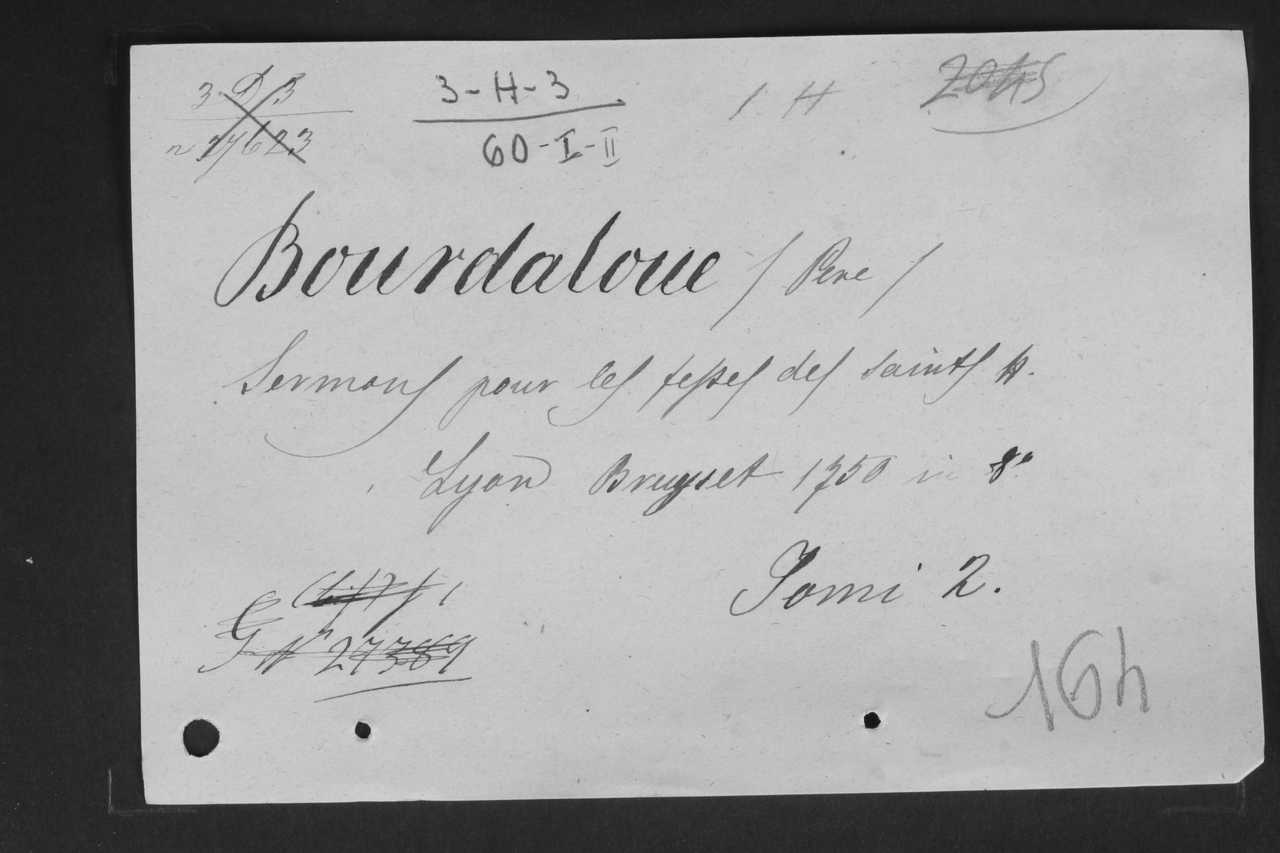 3 D 3
3-H-3
1. H
2045
n 27623
60-I-II
Bourdaloue / Pere /
Sermons pour les festes des saints
Lyon Bruyset 1750 in 8°
Tomi 2.
N° 27389
164